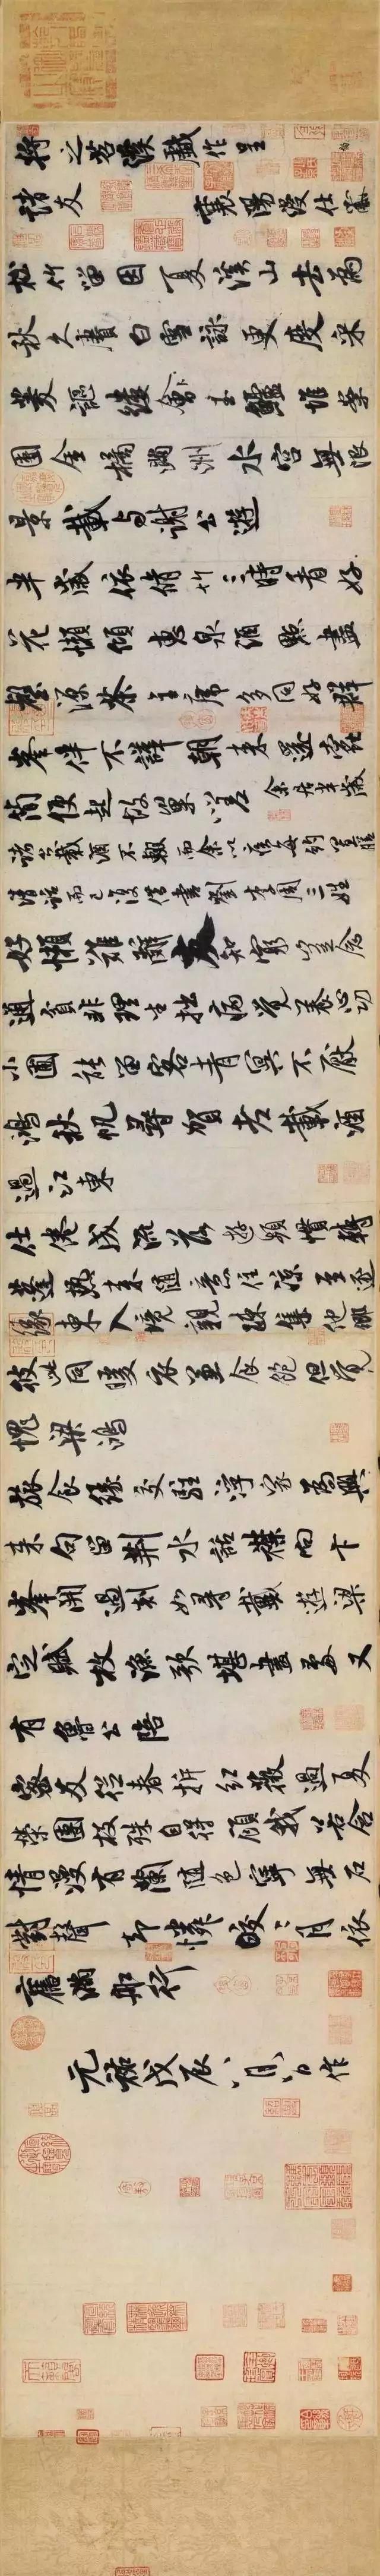 將之苕溪戲作呈
諸友 襄陽漫仕黻
松竹留因夏溪山去為
秋久賡白雪詠更度采
菱謳縷會玉鱸堆案
團金橘滿洲水宮無限
景載與謝公遊
半歲依脩竹三時看好
花懶傾惠泉酒點盡
壑源茶主席多同好群
峯伴不譁朝來還蠹
簡便起故巢嗟 余居半歲
諸公載酒不輟而余以疾每約置膳
清話而已復借書劉李周三姓
好懶難辭友知窮豈念
通貧非理生拙病覺養心功
小圃能留客青冥不厭
鴻秋帆尋賀老載酒
過江東
仕倦成流落遊頻慣轉
蓬熱來隨意住涼至逐
緣東入境親疎集他鄉
彼此同暖衣兼食飽但覺
愧梁鴻
旅食緣交駐浮家為興
來句留荊水話襟向卞
峯開過剡如尋戴遊梁
定賦枚漁歌堪畫處又
有魯公陪
密友從春拆紅薇過夏
榮團枝殊自得顧我若含
情漫有蘭隨色寧無石
對聲却憐皎皎月依
舊滿舡行
元祐戊辰八月八日作